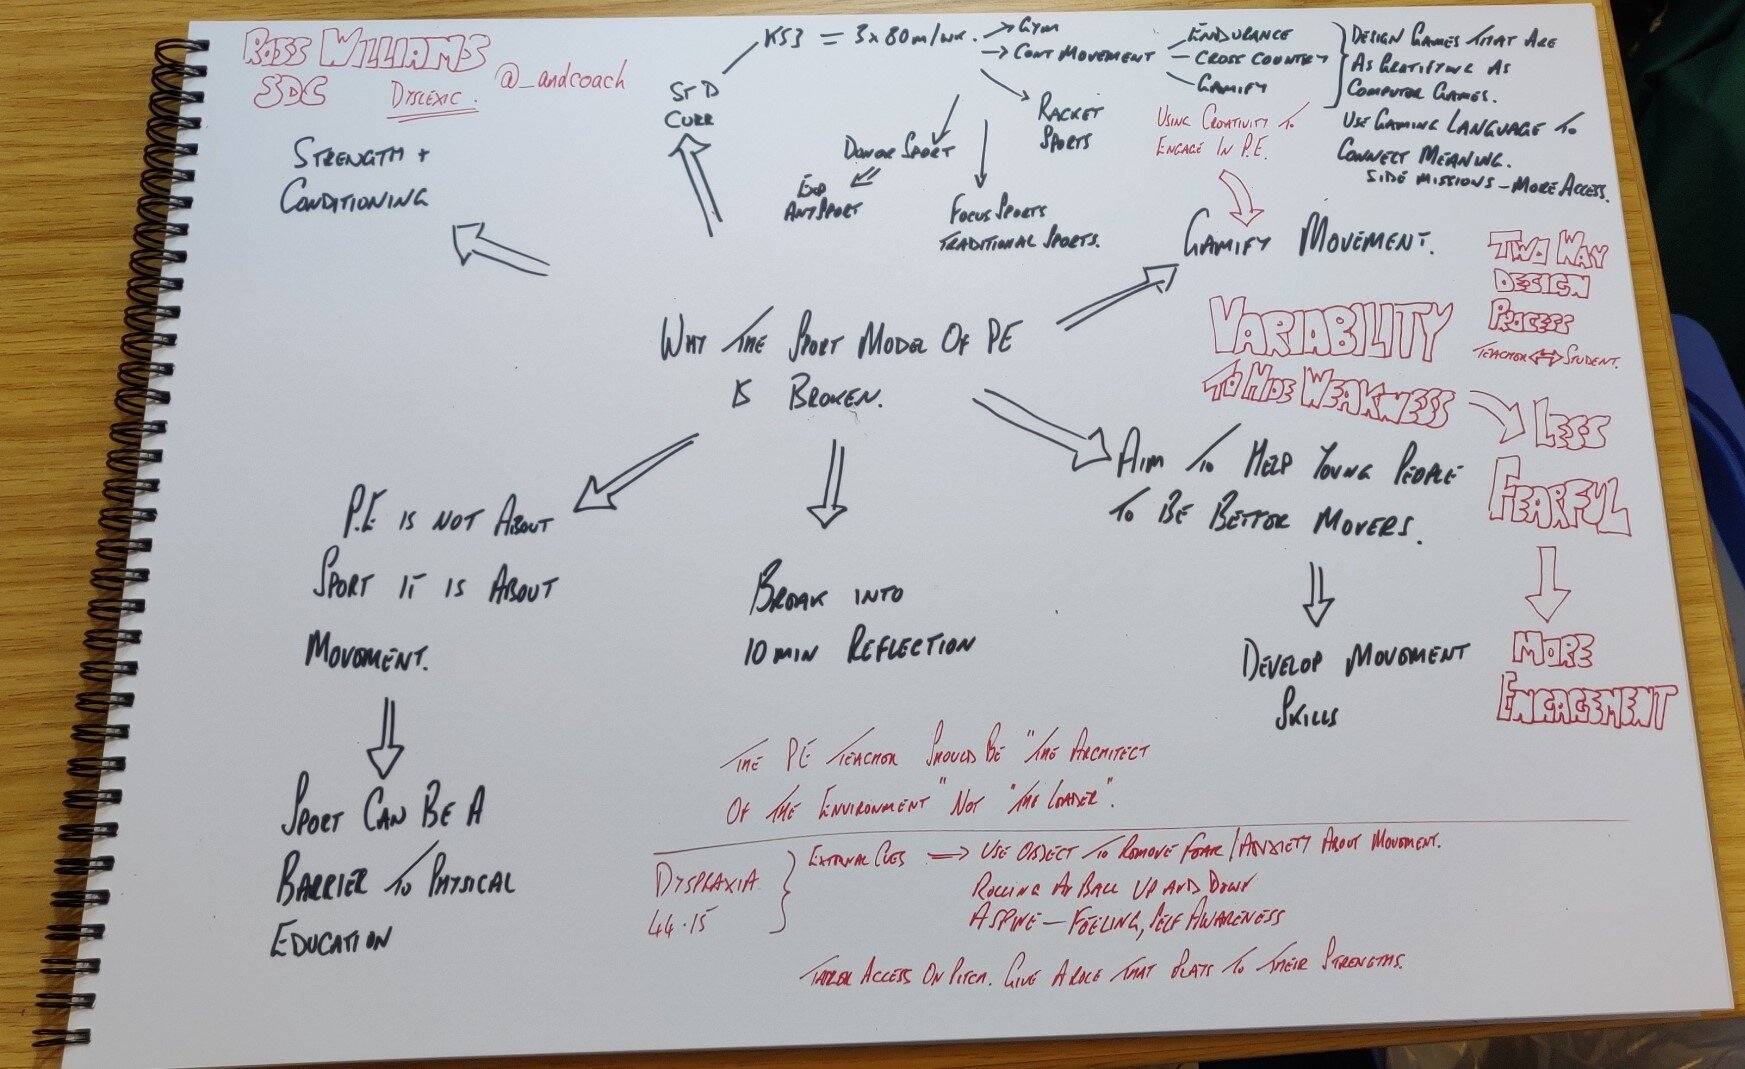 ROSS WILLIAMS
SDC
DYSLEXIC.
@_andcoach
STRENGTH +
CONDITIONING
STD
CURR
KS3 = 3x80m/wk.
GYM
CONT MOVEMENT
RACKET
SPORTS
DONOR SPORT
EXP
ANY SPORT
FOCUS SPORTS
TRADITIONAL SPORTS.
ENDURANCE
CROSS COUNTRY
GAMIFY
DESIGN GAMES THAT ARE
AS GRATIFYING AS
COMPUTER GAMES.
USE GAMING LANGUAGE TO
CONNECT MEANING.
SIDE MISSIONS - MORE ACCESS.
USING CREATIVITY TO
ENGAGE IN P.E.
GAMIFY MOVEMENT.
TWO WAY
DESIGN
PROCESS
TEACHER ⇔ STUDENT.
WHY THE SPORT MODEL OF PE
IS BROKEN.
VARIABILITY
TO HIDE WEAKNESS
LESS
FEARFUL
MORE
ENGAGEMENT
AIM TO HELP YOUNG PEOPLE
TO BE BETTER MOVERS.
DEVELOP MOVEMENT
SKILLS
P.E IS NOT ABOUT
SPORT IT IS ABOUT
MOVEMENT.
SPORT CAN BE A
BARRIER TO PHYSICAL
EDUCATION
BREAK INTO
10 MIN REFLECTION
THE PE TEACHER SHOULD BE "THE ARCHITECT
OF THE ENVIRONMENT" NOT "THE LEADER".
DYSPRAXIA
44.15
EXTERNAL CUES ⇒ USE OBJECT TO REMOVE FEAR/ANXIETY ABOUT MOVEMENT.
ROLLING A BALL UP AND DOWN
A SPINE — FEELING, SELF AWARENESS
TAILOR ACCESS ON PITCH. GIVE A ROLE THAT PLAYS TO THEIR STRENGTHS.